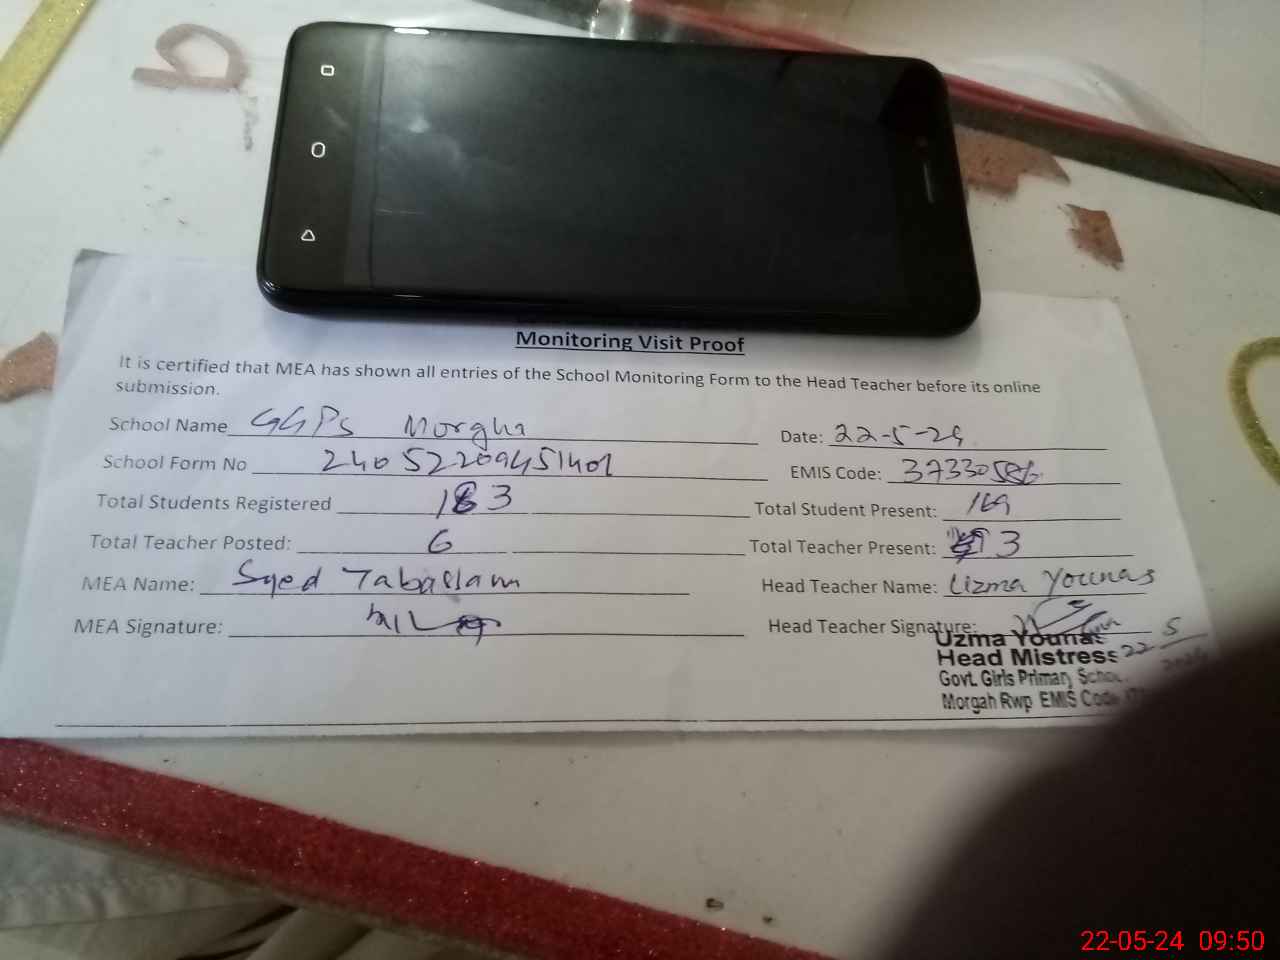 Monitoring Visit Proof
It is certified that MEA has shown all entries of the School Monitoring Form to the Head Teacher before its online
submission.
School Name GGPS Morgha Date: 22-5-24
School Form No 24052209451401 EMIS Code: 37330586
Total Students Registered 183 Total Student Present: 169
Total Teacher Posted: 6 Total Teacher Present: 3
MEA Name: Syed Tabassam Head Teacher Name: Uzma Younas
MEA Signature: Head Teacher Signature:
Uzma Younas 22 5
Head Mistress 2024
Govt. Girls Primary School
Morgah Rwp EMIS Code
22-05-24 09:50